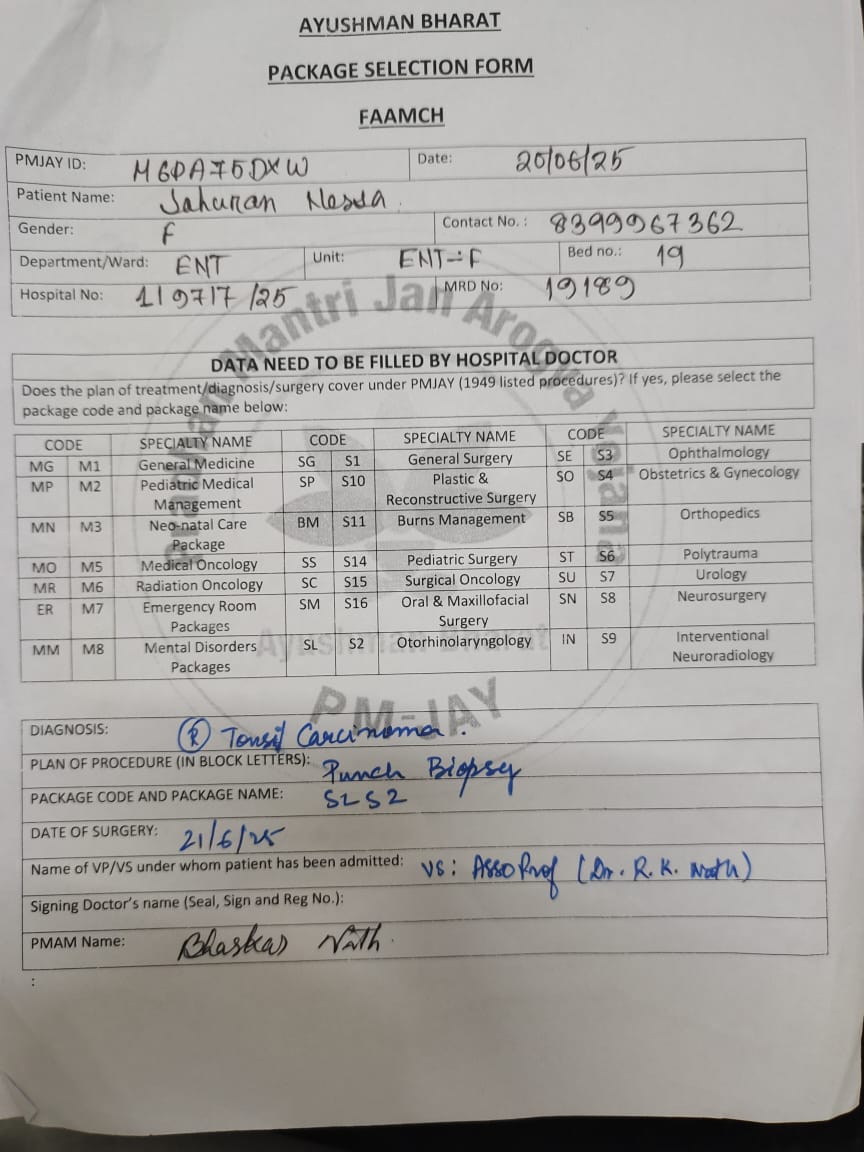 AYUSHMAN BHARAT
PACKAGE SELECTION FORM
FAAMCH
PMJAY ID: M6PA75DXW Date: 20/06/25
Patient Name: Jahuran Nessa
Gender: F Contact No.: 8399967362
Department/Ward: ENT Unit: ENT-F Bed no.: 19
Hospital No: 119717/25 MRD No: 19189
DATA NEED TO BE FILLED BY HOSPITAL DOCTOR
Does the plan of treatment/diagnosis/surgery cover under PMJAY (1949 listed procedures)? If yes, please select the
package code and package name below:
CODE SPECIALTY NAME CODE SPECIALTY NAME CODE SPECIALTY NAME
MG M1 General Medicine SG S1 General Surgery SE S3 Ophthalmology
MP M2 Pediatric Medical Management SP S10 Plastic & Reconstructive Surgery SO S4 Obstetrics & Gynecology
MN M3 Neo-natal Care Package BM S11 Burns Management SB S5 Orthopedics
MO M5 Medical Oncology SS S14 Pediatric Surgery ST S6 Polytrauma
MR M6 Radiation Oncology SC S15 Surgical Oncology SU S7 Urology
ER M7 Emergency Room Packages SM S16 Oral & Maxillofacial Surgery SN S8 Neurosurgery
MM M8 Mental Disorders Packages SL S2 Otorhinolaryngology IN S9 Interventional Neuroradiology
Pradhan Mantri Jan Arogya Yojana
Ayushman Bharat
PM-JAY
DIAGNOSIS: (R) Tonsil Carcinoma.
PLAN OF PROCEDURE (IN BLOCK LETTERS): Punch Biopsy
PACKAGE CODE AND PACKAGE NAME: SLS2
DATE OF SURGERY: 21/6/25
Name of VP/VS under whom patient has been admitted: VS: Asso Prof (Dr. R. K. Nath)
Signing Doctor's name (Seal, Sign and Reg No.):
PMAM Name: Bhaskar Nath.
: